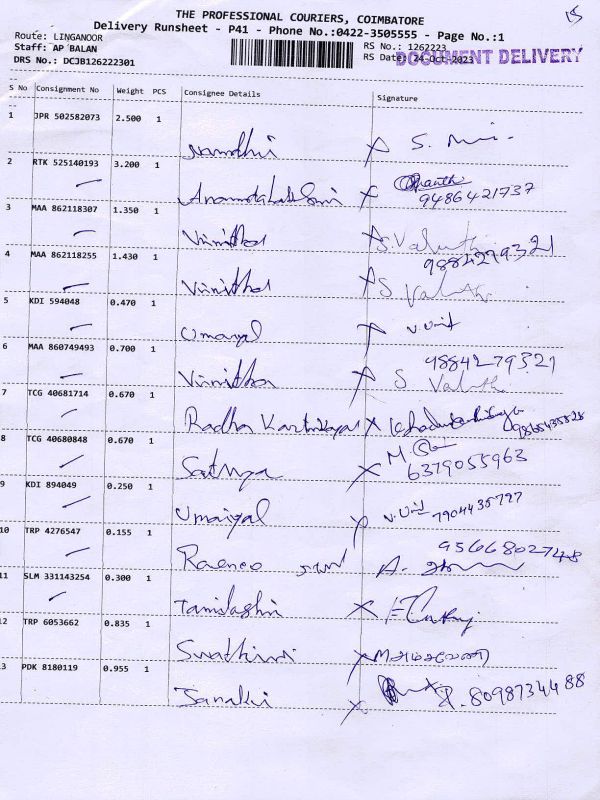 15
THE PROFESSIONAL COURIERS, COIMBATORE
Delivery Runsheet - P41 - Phone No.:0422-3505555 - Page No.:1
Route: LINGANOOR
Staff: AP BALAN
DRS No.: DCJB126222301
RS No.: 1262223
RS Date: 24-Oct-2023
DOCUMENT DELIVERY
S No Consignment No Weight PCS Consignee Details Signature
1 JPR 502582073 2.500 1
Nandhi
2 RTK 525140193 3.200 1
9486421737
3 MAA 862118307 1.350 1
Vinitha S. Valarthi
9884279321
4 MAA 862118255 1.430 1
Vinitha S
5 KDI 594048 0.470 1
Umayal
6 MAA 860749493 0.700 1
9884279321
Vinitha S
7 TCG 40681714 0.670 1
Radha
8 TCG 40680848 0.670 1
Sathya M.
6379055963
9 KDI 894049 0.250 1
Umaiyal 7904435727
10 TRP 4276547 0.155 1
A.
11 SLM 331143254 0.300 1
12 TRP 6053662 0.835 1
3 PDK 8180119 0.955 1
Janaki P. 8098734488